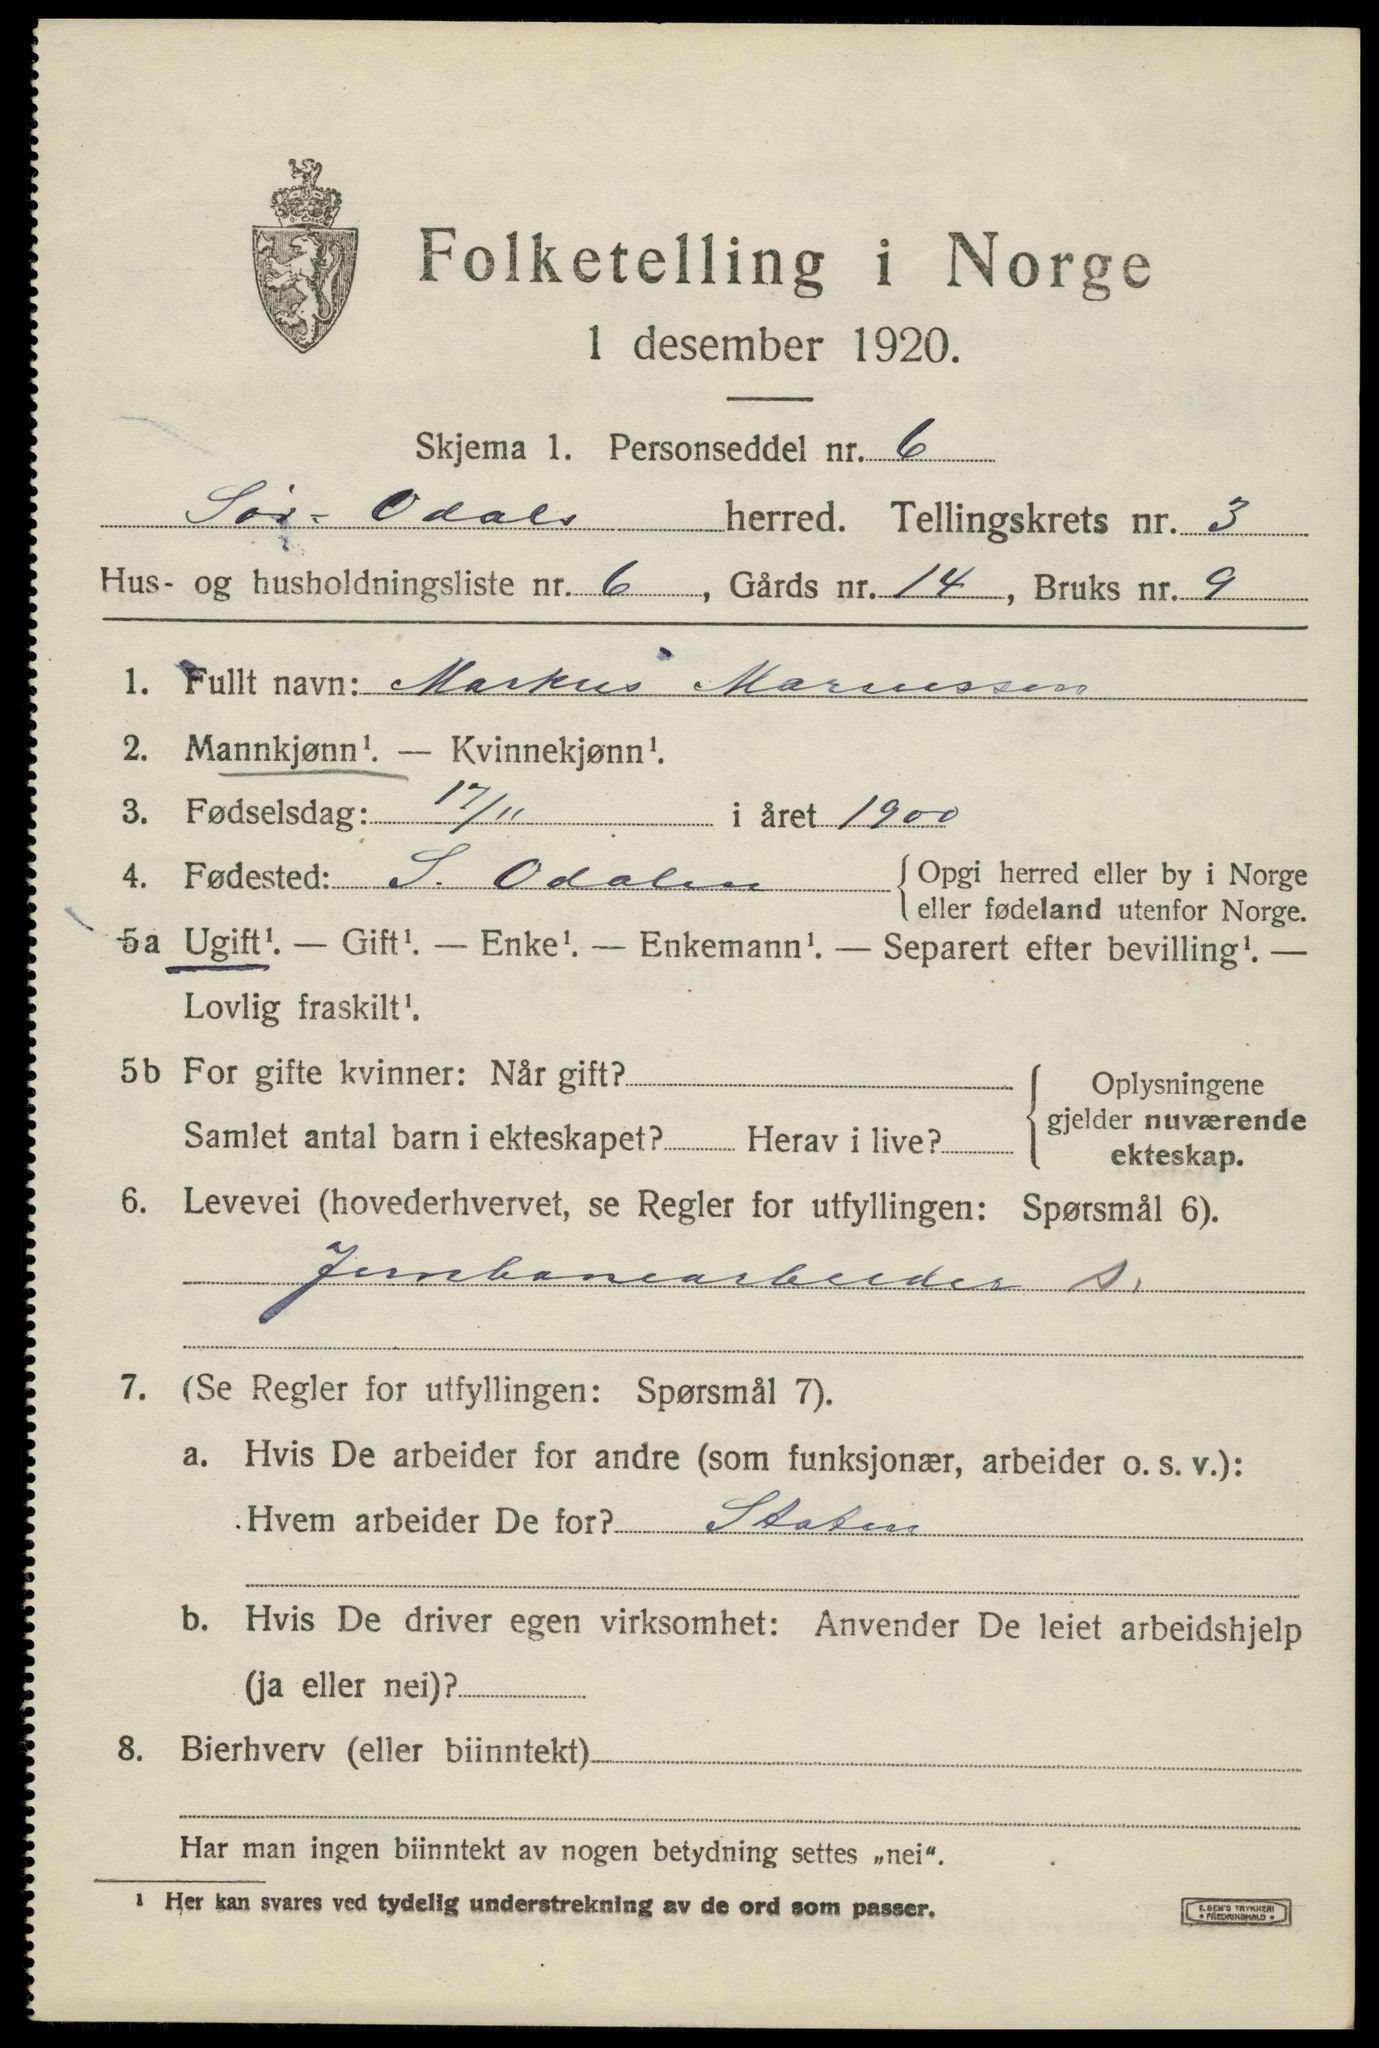 Folketelling i Norge
1 desember 1920.
Skjema 1. Personseddel nr. 6
Sør-Odals herred. Tellingskrets nr. 3
Hus- og husholdningsliste nr. 6, Gårds nr. 14, Bruks nr. 9
1. Fullt navn: Markus Mariussen
2. Mannkjønn¹. — Kvinnekjønn¹.
3. Fødselsdag: 17/11 i året 1900
4. Fødested: S. Odalen { Opgi herred eller by i Norge
eller fødeland utenfor Norge.
5a Ugift¹. — Gift¹. — Enke¹. — Enkemann¹. — Separert efter bevilling¹. —
Lovlig fraskilt¹.
5b For gifte kvinner: Når gift? { Oplysningene
gjelder nuværende
Samlet antal barn i ekteskapet? Herav i live?
ekteskap.
6. Levevei (hovederhvervet, se Regler for utfyllingen: Spørsmål 6).
Jernbanearbeider s.
7. (Se Regler for utfyllingen: Spørsmål 7).
a. Hvis De arbeider for andre (som funksjonær, arbeider o. s. v.):
Hvem arbeider De for? Staten
b. Hvis De driver egen virksomhet: Anvender De leiet arbeidshjelp
(ja eller nei)?
8. Bierhverv (eller biinntekt)
Har man ingen biinntekt av nogen betydning settes „nei“.
¹ Her kan svares ved tydelig understrekning av de ord som passer.
E. SEM'S TRYKKERI
• FREDRIKSHALD •